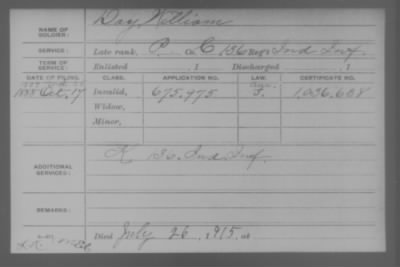 NAME OF SOLDIER: Day, William
SERVICE: Late rank, P. C 136 Reg't Ind Inf.
TERM OF SERVICE: Enlisted , 1 Discharged , 1
DATE OF FILING. CLASS. APPLICATION NO. LAW. CERTIFICATE NO.
1888 Oct. 17 Invalid, 675.975 1.036.608
Widow,
Minor,
ADDITIONAL SERVICES: K 136 Ind Inf.
REMARKS:
Died July 26, 1915, at